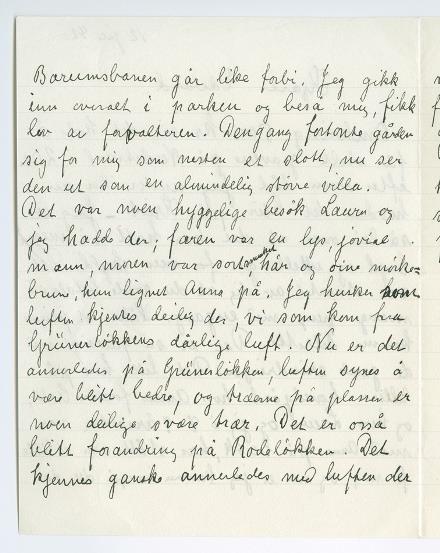 Bærumsbanen går like forbi. Jeg gikk
inn overalt i parken og beså mig, fikk
lov av forvalteren. Dengang fortonte gården
sig for mig som nesten et slott, nu ser
den ut som en almindelig større villa.
Det var noen hyggelige besøk Laura og
jeg hadde der; faren var en lys, jovial
mann, moren var sortsmusket hår og øine mørke=
brune, hun lignet Anna på. Jeg husker
luften kjentes deilig der, vi som kom fra
Grünerløkkens dårlige luft. Nu er det
annerledes på Grünerløkken, luften synes å
være blitt bedre, og trærne på plassen er
noen deilige svære trær. Det er også
blitt forandring på Rodeløkken. Det
kjennes ganske annerledes med luften der